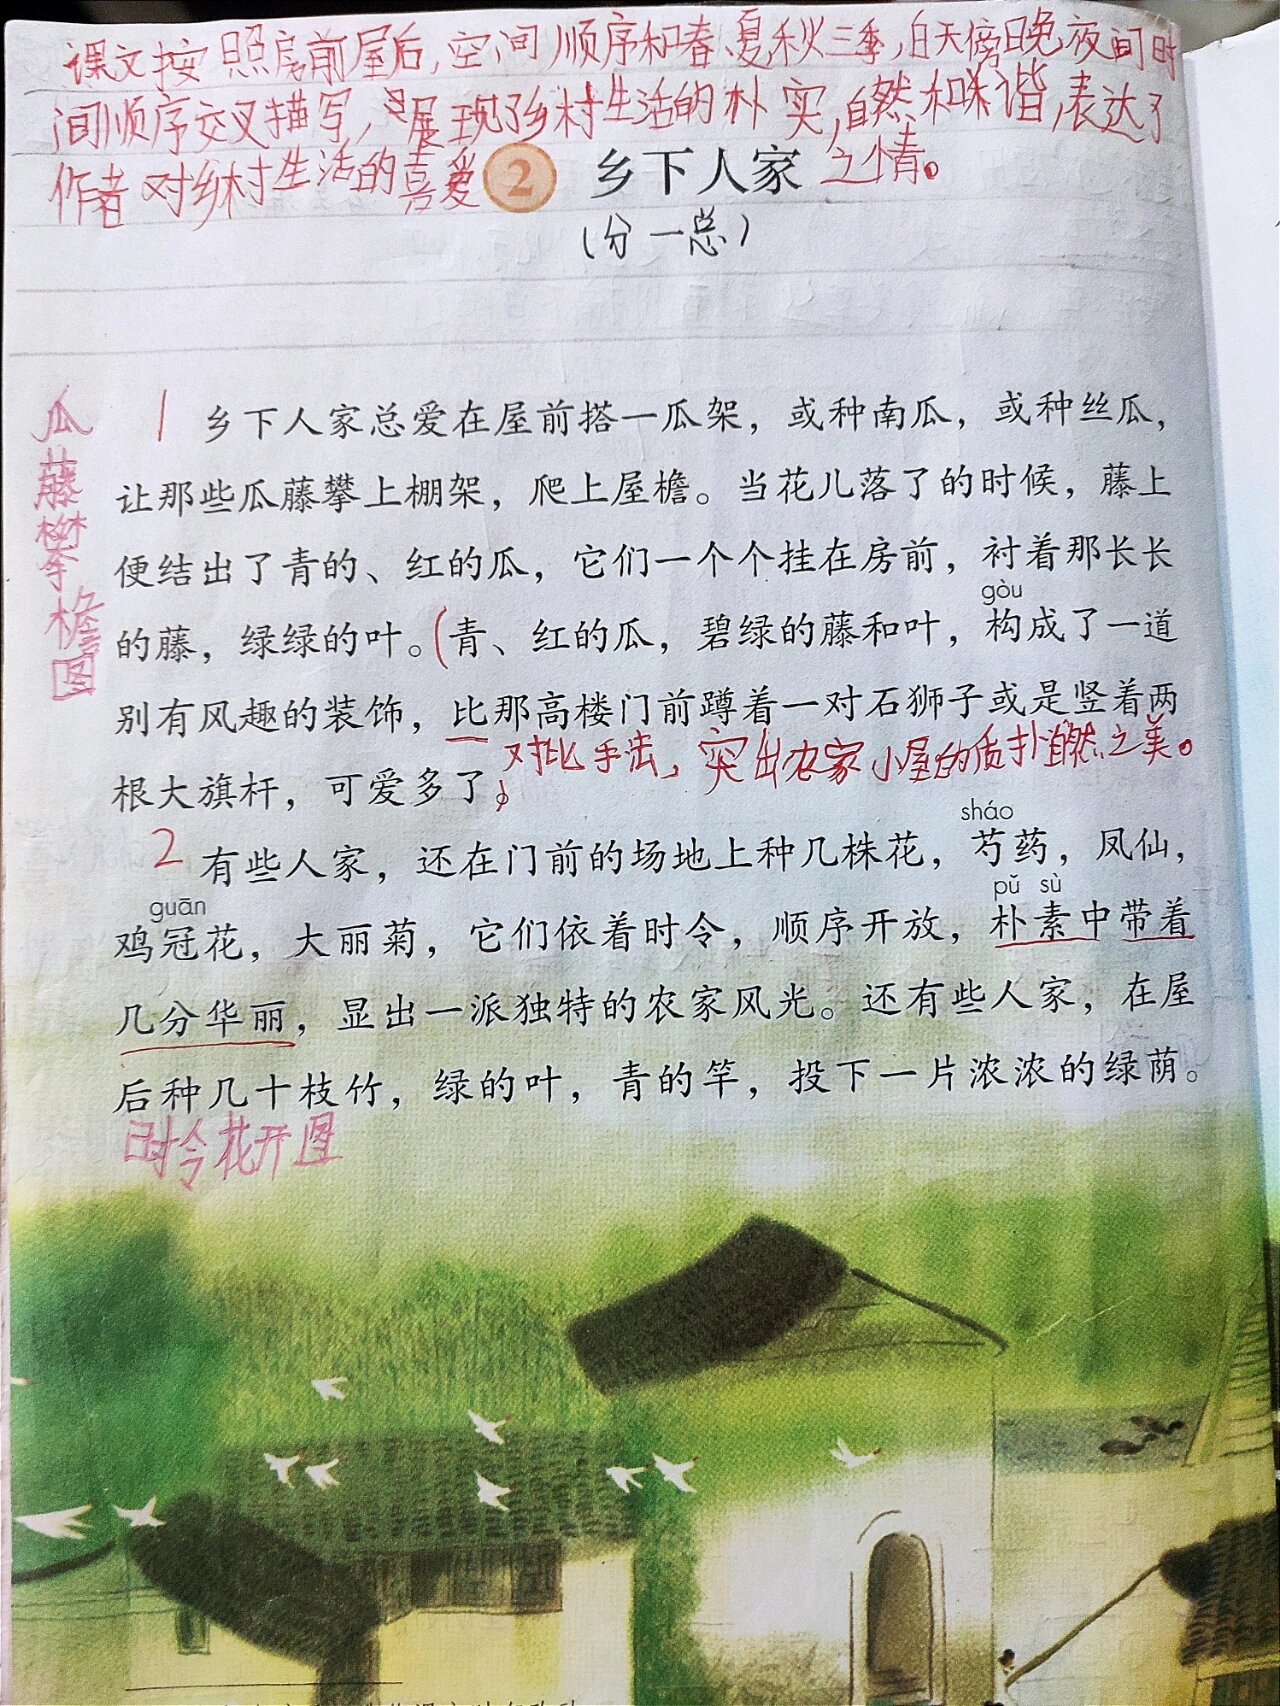 课文按照房前屋后,空间顺序和春、夏、秋三季,白天傍晚夜间时
间顺序交叉描写,展现了乡村生活的朴实,自然和谐,表达了
作者对乡村生活的喜爱之情。
2 乡下人家
(分一总)
瓜藤攀檐图
1 乡下人家总爱在屋前搭一瓜架，或种南瓜，或种丝瓜，
让那些瓜藤攀上棚架，爬上屋檐。当花儿落了的时候，藤上
便结出了青的、红的瓜，它们一个个挂在房前，衬着那长长
gòu
的藤，绿绿的叶。(青、红的瓜，碧绿的藤和叶，构成了一道
别有风趣的装饰，比那高楼门前蹲着一对石狮子或是竖着两
对比手法,突出农家小屋的质扑自然之美。
根大旗杆，可爱多了。
sháo
2 有些人家，还在门前的场地上种几株花，芍药，凤仙，
guān pǔ sù
鸡冠花，大丽菊，它们依着时令，顺序开放，朴素中带着
几分华丽，显出一派独特的农家风光。还有些人家，在屋
后种几十枝竹，绿的叶，青的竿，投下一片浓浓的绿荫。
时令花开图